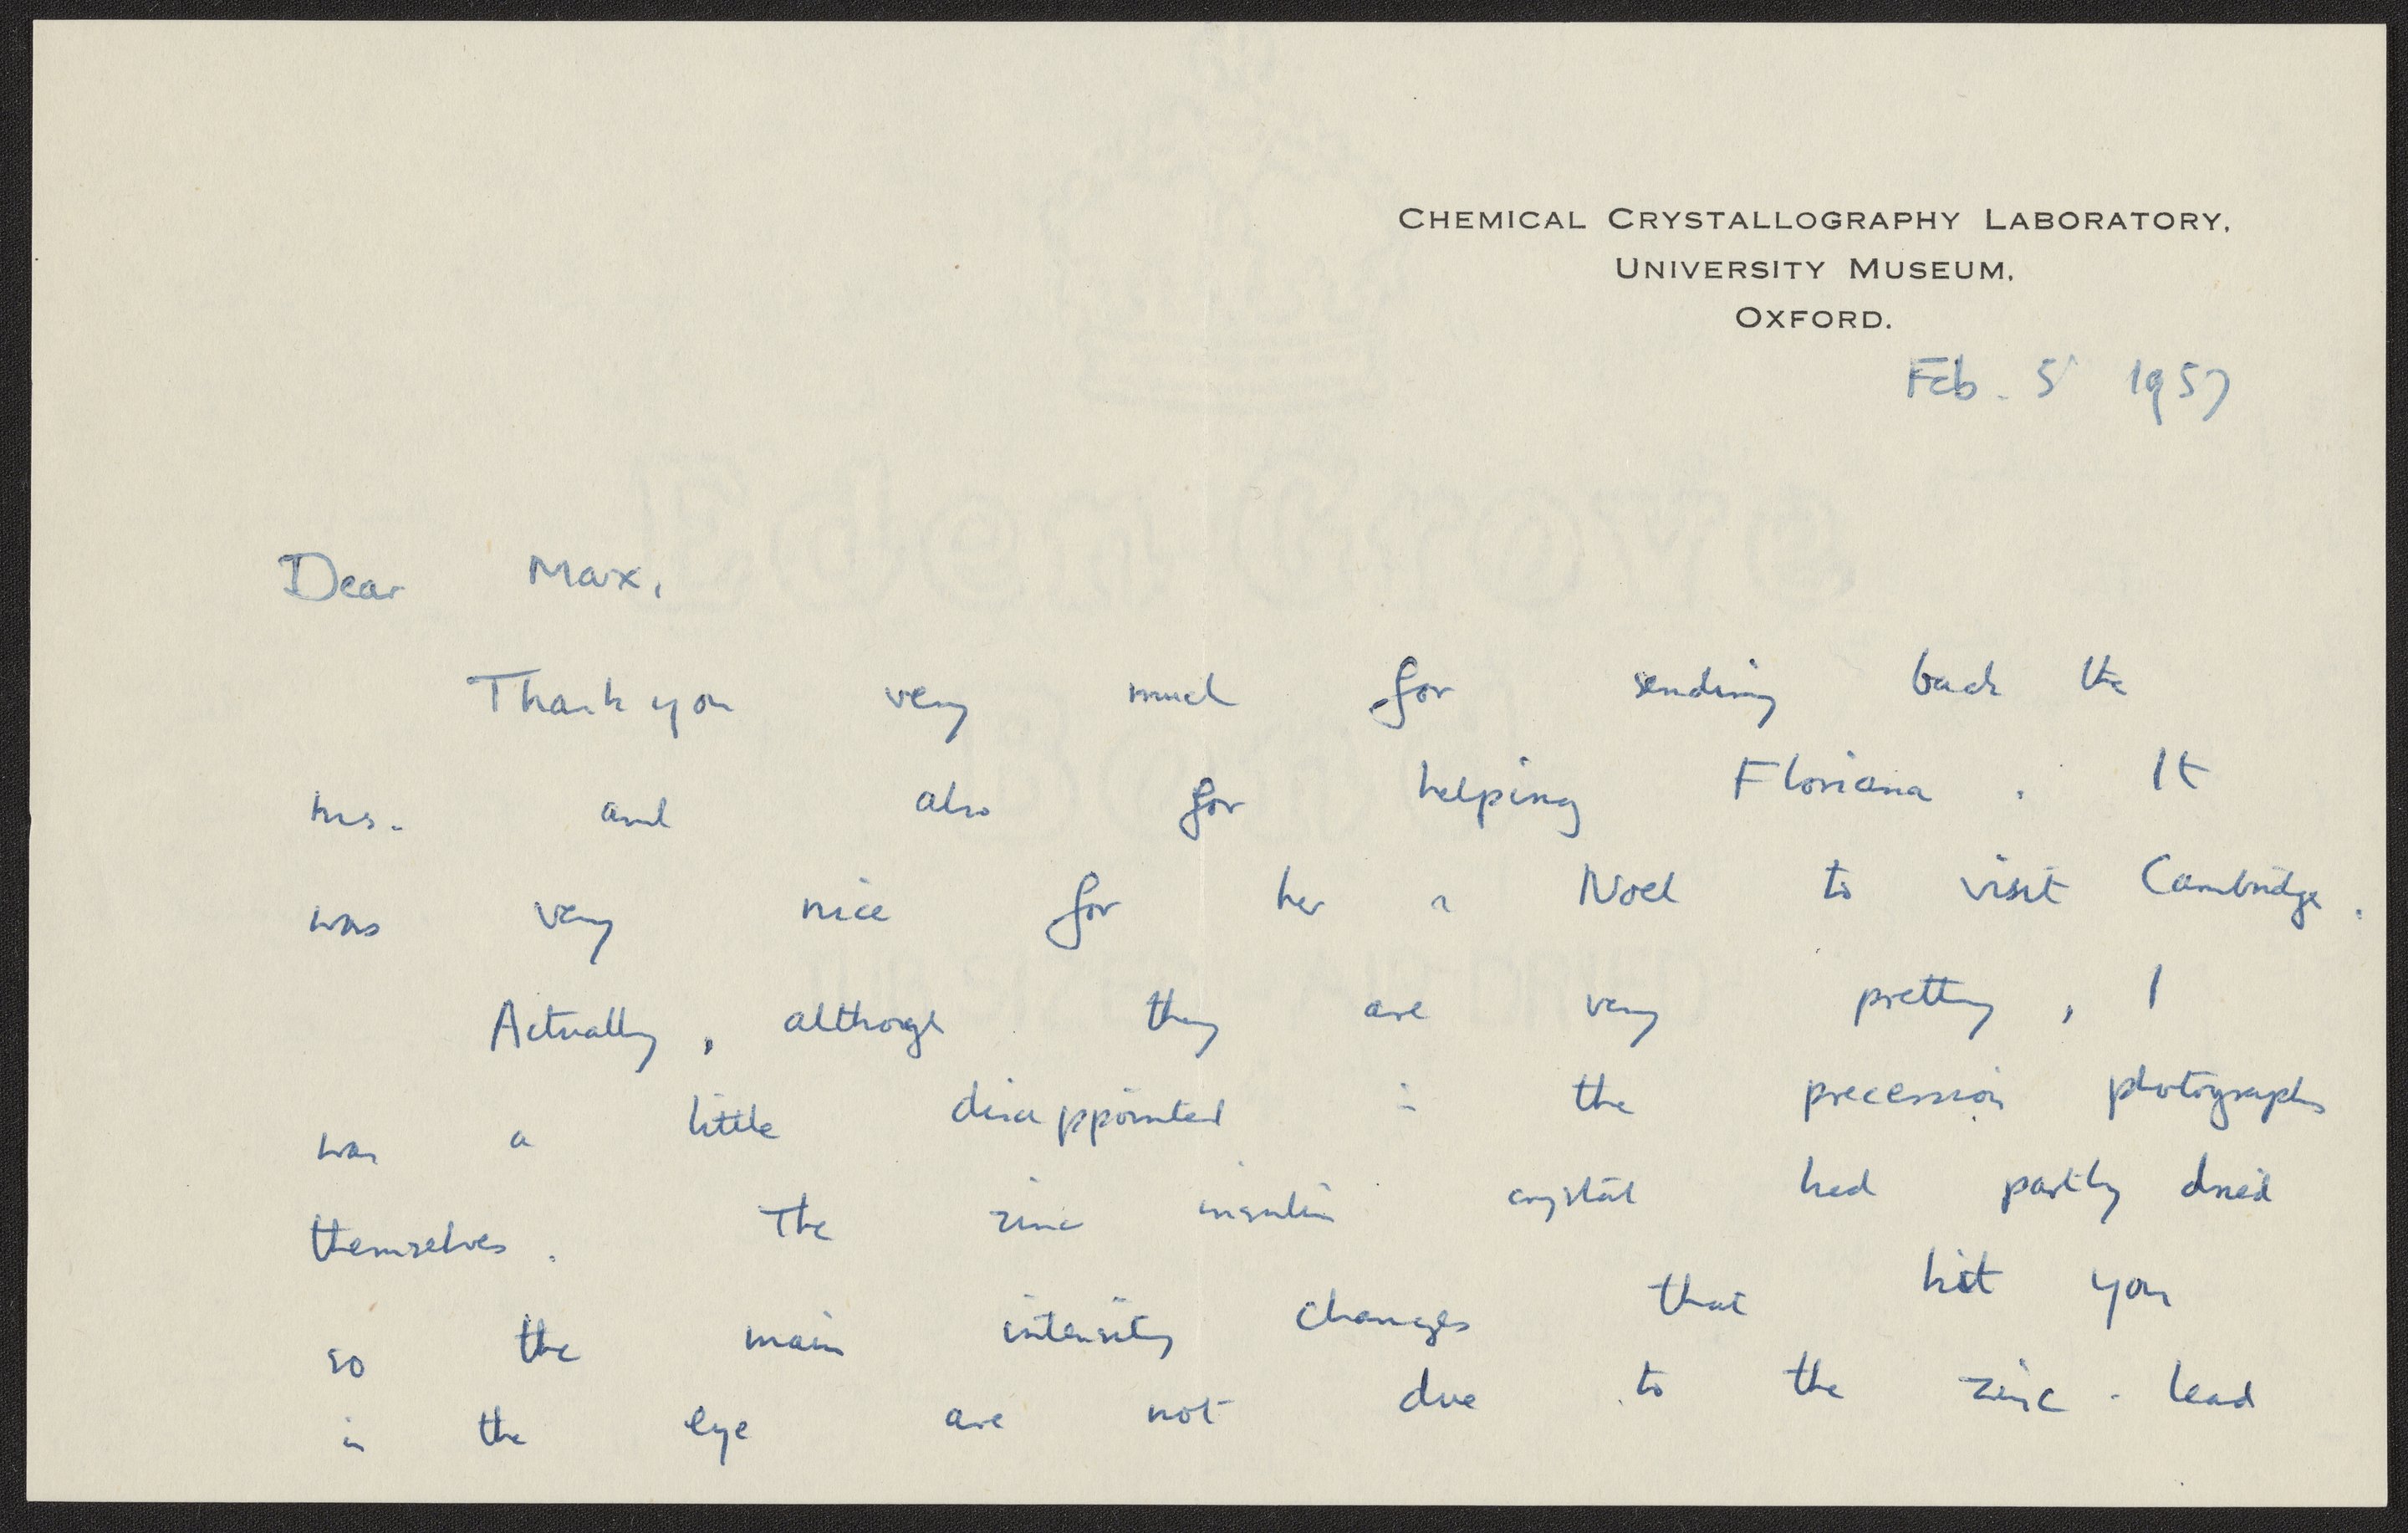 CHEMICAL CRYSTALLOGRAPHY LABORATORY,
UNIVERSITY MUSEUM,
OXFORD.
Feb. 5 1957
Dear Max,
Thank you very much for sending back the
ms. and also for helping Floriana. It
was very nice for her & Noel to visit Cambridge.
Actually, although they are very pretty, I
was a little disappointed in the precession photographs
themselves. The zinc insulin crystal had partly dried
so the main intensity changes that hit you
in the eye are not due to the zinc - lead